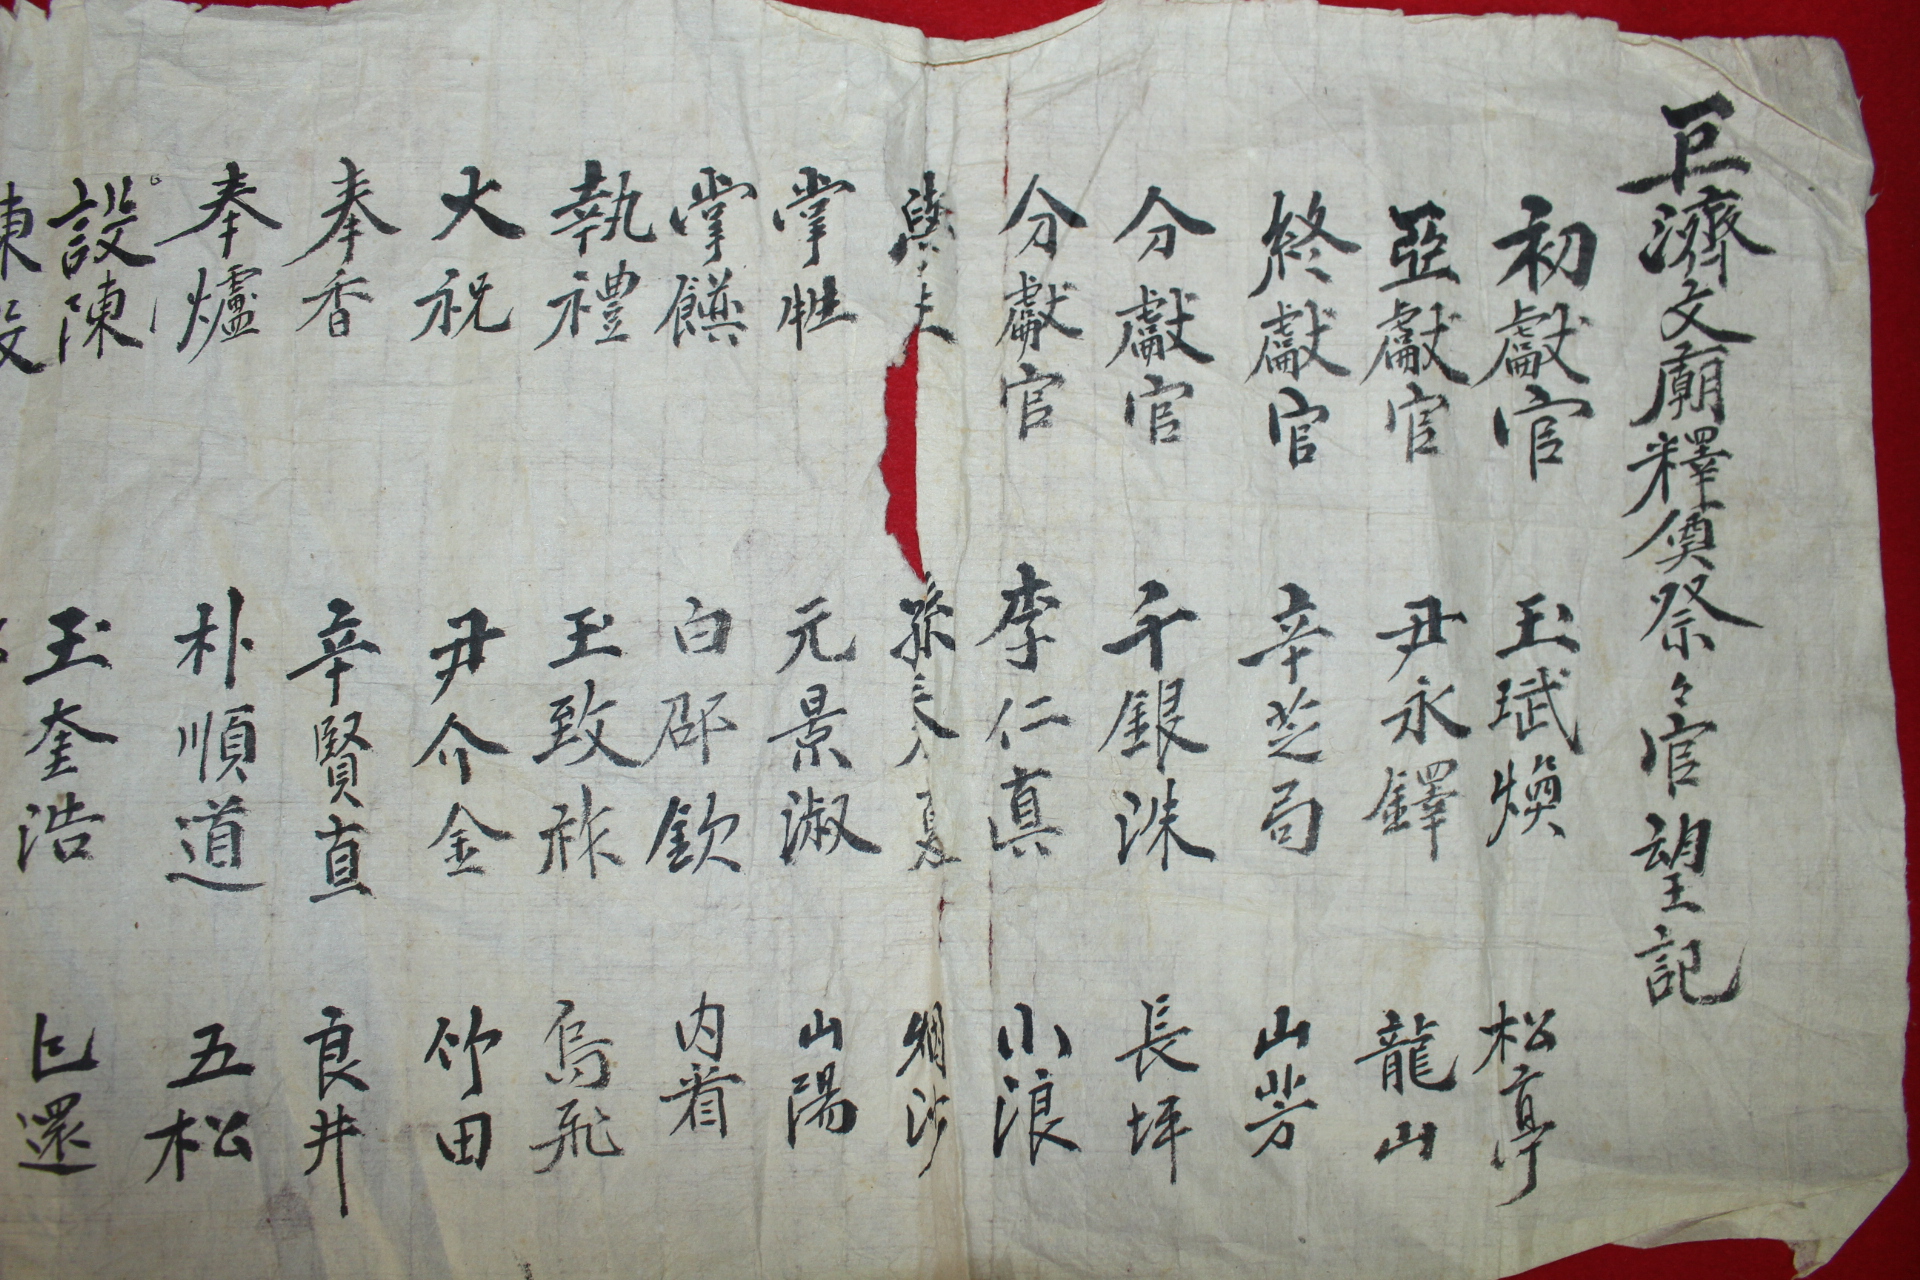 巨濟文廟釋奠祭々官望記
初獻官 玉珷煥 松亭
亞獻官 尹永鐸 龍山
終獻官 辛芝局 山芳
分獻官 千銀洙 長坪
分獻官 李仁眞 小浪
孫 夏 烟沙
掌牲 元景淑 山陽
掌饌 白邵欽 內看
執禮 玉致祚 烏飛
大祝 尹介金 竹田
奉香 辛賢直 良井
奉爐 朴順道 五松
設陳 玉奎浩 巳還
陳設